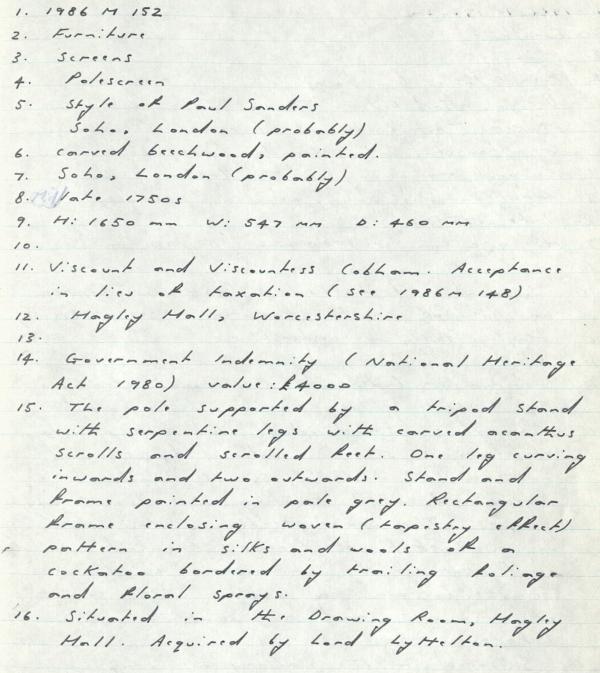 1. 1986 M 152
2. Furniture
3. Screens
4. Polescreen
5. Style of Paul Sanders
Soho, London (probably)
6. carved beechwood, painted.
7. Soho, London (probably)
8. Mid/late 1750s
9. H: 1650 mm W: 547 mm D: 460 mm
10.
11. Viscount and Viscountess Cobham. Acceptance
in lieu of taxation (see 1986 M 148)
12. Hagley Hall, Worcestershire
13.
14. Government Indemnity (National Heritage
Act 1980) value: £4000
15. The pole supported by a tripod stand
with serpentine legs with carved acanthus
scrolls and scrolled feet. One leg curving
inwards and two outwards. Stand and
frame painted in pale grey. Rectangular
frame enclosing woven (tapestry effect)
pattern in silks and wools of a
cockatoo bordered by trailing foliage
and floral sprays.
16. Situated in the Drawing Room, Hagley
Hall. Acquired by Lord Lyttelton.